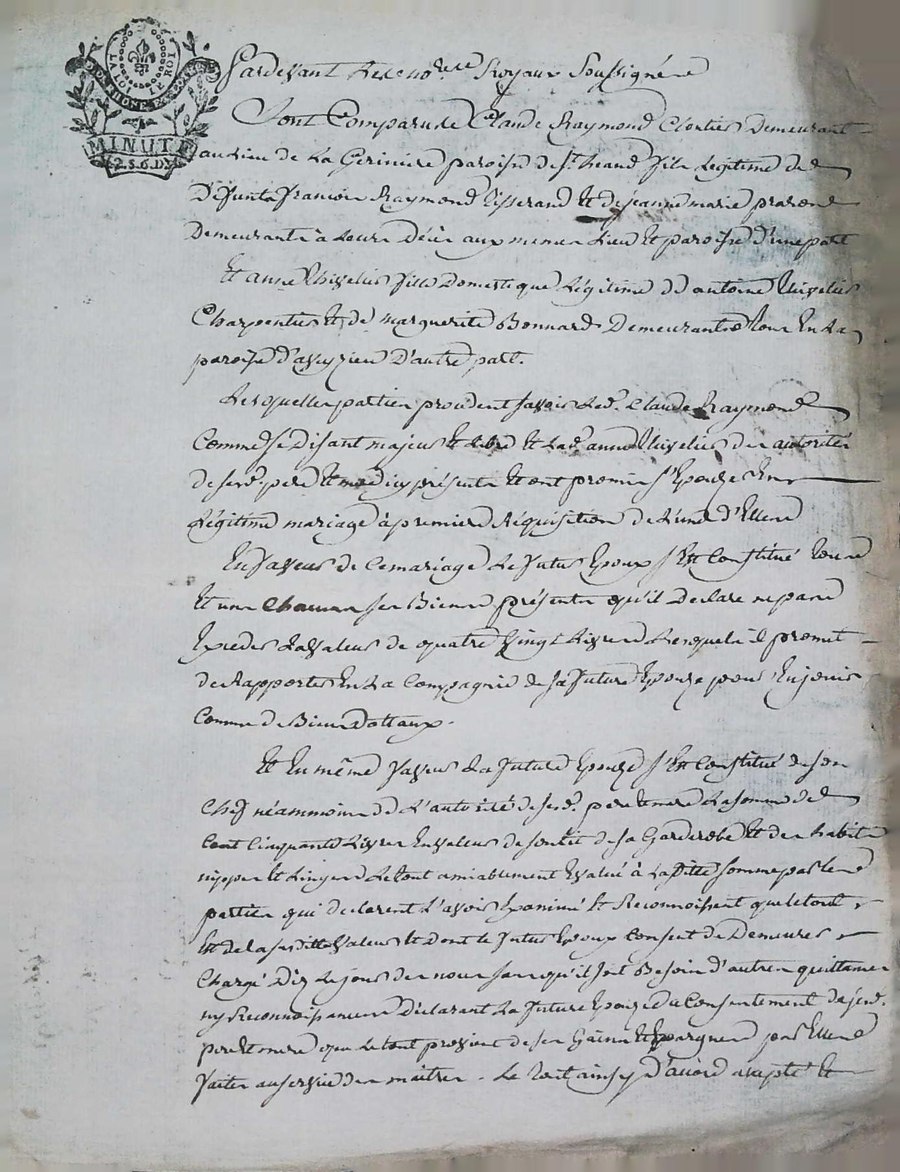 LA LOI LE ROI
MINUTE
2.S.6.D
Pardevant Les no.res Royaux Soussignés
Sont Comparus Claude Raymond Clortier Demeurant
au Lieu de La paroisse de St. heand fils Legitime de
Defunts francois Raymond tisserand Et de jeanne marie
Demeurants à Leurs Décès aux memes Lieu Et paroisse d'une part
Et anne fille Domestique Légitime de antoine
Charpentier Et de marguerite Bonnard Demeurants tous En La
paroisse d'aveyzieu D'autre part.
Lesquelles parties procedent savoir Led. Claude Raymond
Comme se Disant majeur Et Libre Et Lad. anne de autorité
de sesd. pere Et mere icy présents Et ont promis s'Epouzer En
Légitime mariage à première Réquisition de L'une d'Elles
En faveur de Ce mariage Le futur Epoux s'Est Constitué tous
Et uns Chacuns ses Biens présents qu'il Declare ne pas
Exceder La valeur de quatre vingt Livres Lesquels il promet
de Rapporter En La Compagnie de sa future Epouze pour En jouir
Comme de Biens Dottaux.
Et En même faveur La future Epouze s'Est Constitué de son
Chef néammoins de L'autorité de sesd. pere Et mere La somme de
Cent Cinquante Livres En valeur de son Lit de sa Garderobe Et des habits
nippes Et Linges Le tout amiablement Evalué à La ditte somme par les
parties qui declarent L'avoir Examiné Et Reconnoissent que le tout
Est de la susditte valeur Et dont le futur Epoux Consent de Demeurer
Chargé Dez Le jour des noces sans qu'il soit Besoin d'autres quittances
ny Reconnoissances Déclarant La future Epouze du Consentement de sesd.
pere Et mere que Le tout provient de ses Gains Et Epargnes par Elle
faites au service des maitres. Le tout ainsy d'accord accepté Et